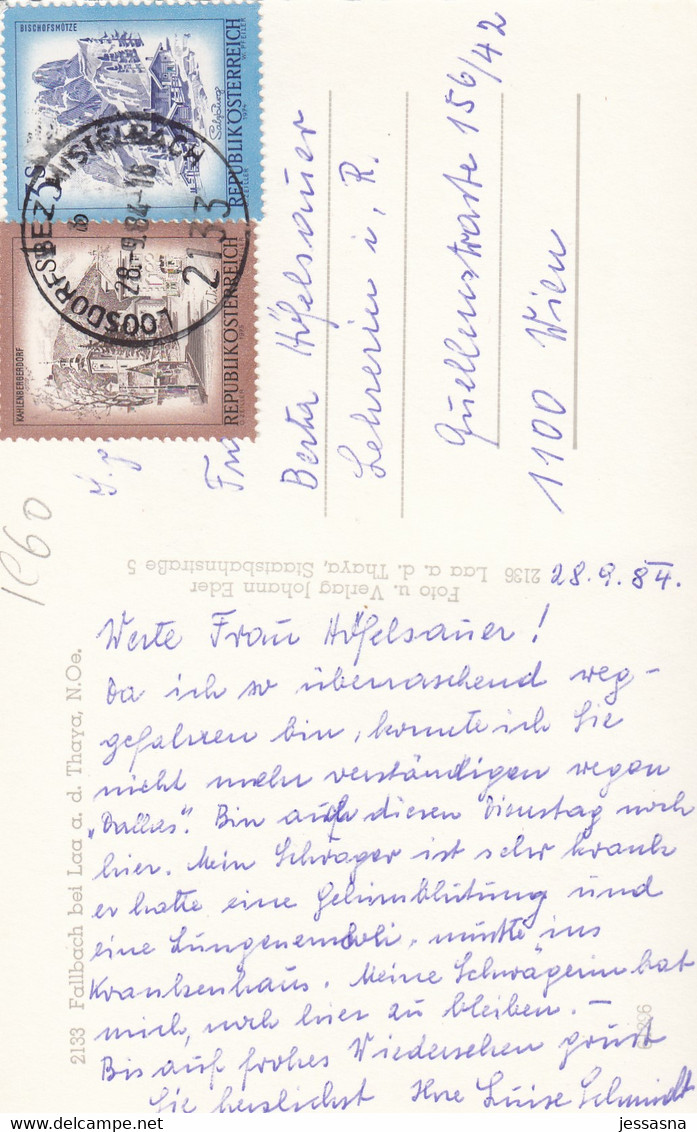 BISCHOFSMÜTZE
Salzburg
1974
W. PFEILER
ZEILER
REPUBLIK ÖSTERREICH
KAHLENBERGERDORF
1975
G. ZEILER
REPUBLIK ÖSTERREICH
LOOSDORF BEZ. MISTELBACH
28.-9.84-16
2133
Berta Höfelsauer
Lehrerin i. R.
Quellenstraße 156/42
1100 Wien
Foto u. Verlag Johann Eder
2136 Laa a. d. Thaya, Staatsbahnstraße 5
2133 Fallbach bei Laa a. d. Thaya, N.Oe.
28.9.84.
Werte Frau Höfelsauer!
Da ich so überraschend weg-
gefahren bin, konnte ich Sie
nicht mehr verständigen wegen
„Dallas". Bin auch diesen Dienstag noch
hier. Mein Schwager ist sehr krank
er hatte eine Gehirnblutung und
eine Lungenemboli, mußte ins
Krankenhaus. Meine Schwägerin bat
mich, noch hier zu bleiben. –
Bis auf frohes Wiedersehen grüßt
Sie herzlichst Ihre Luise Schmidt
jessasna